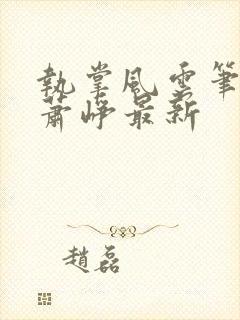 執掌風雲筆
蕭崢最新
趙磊